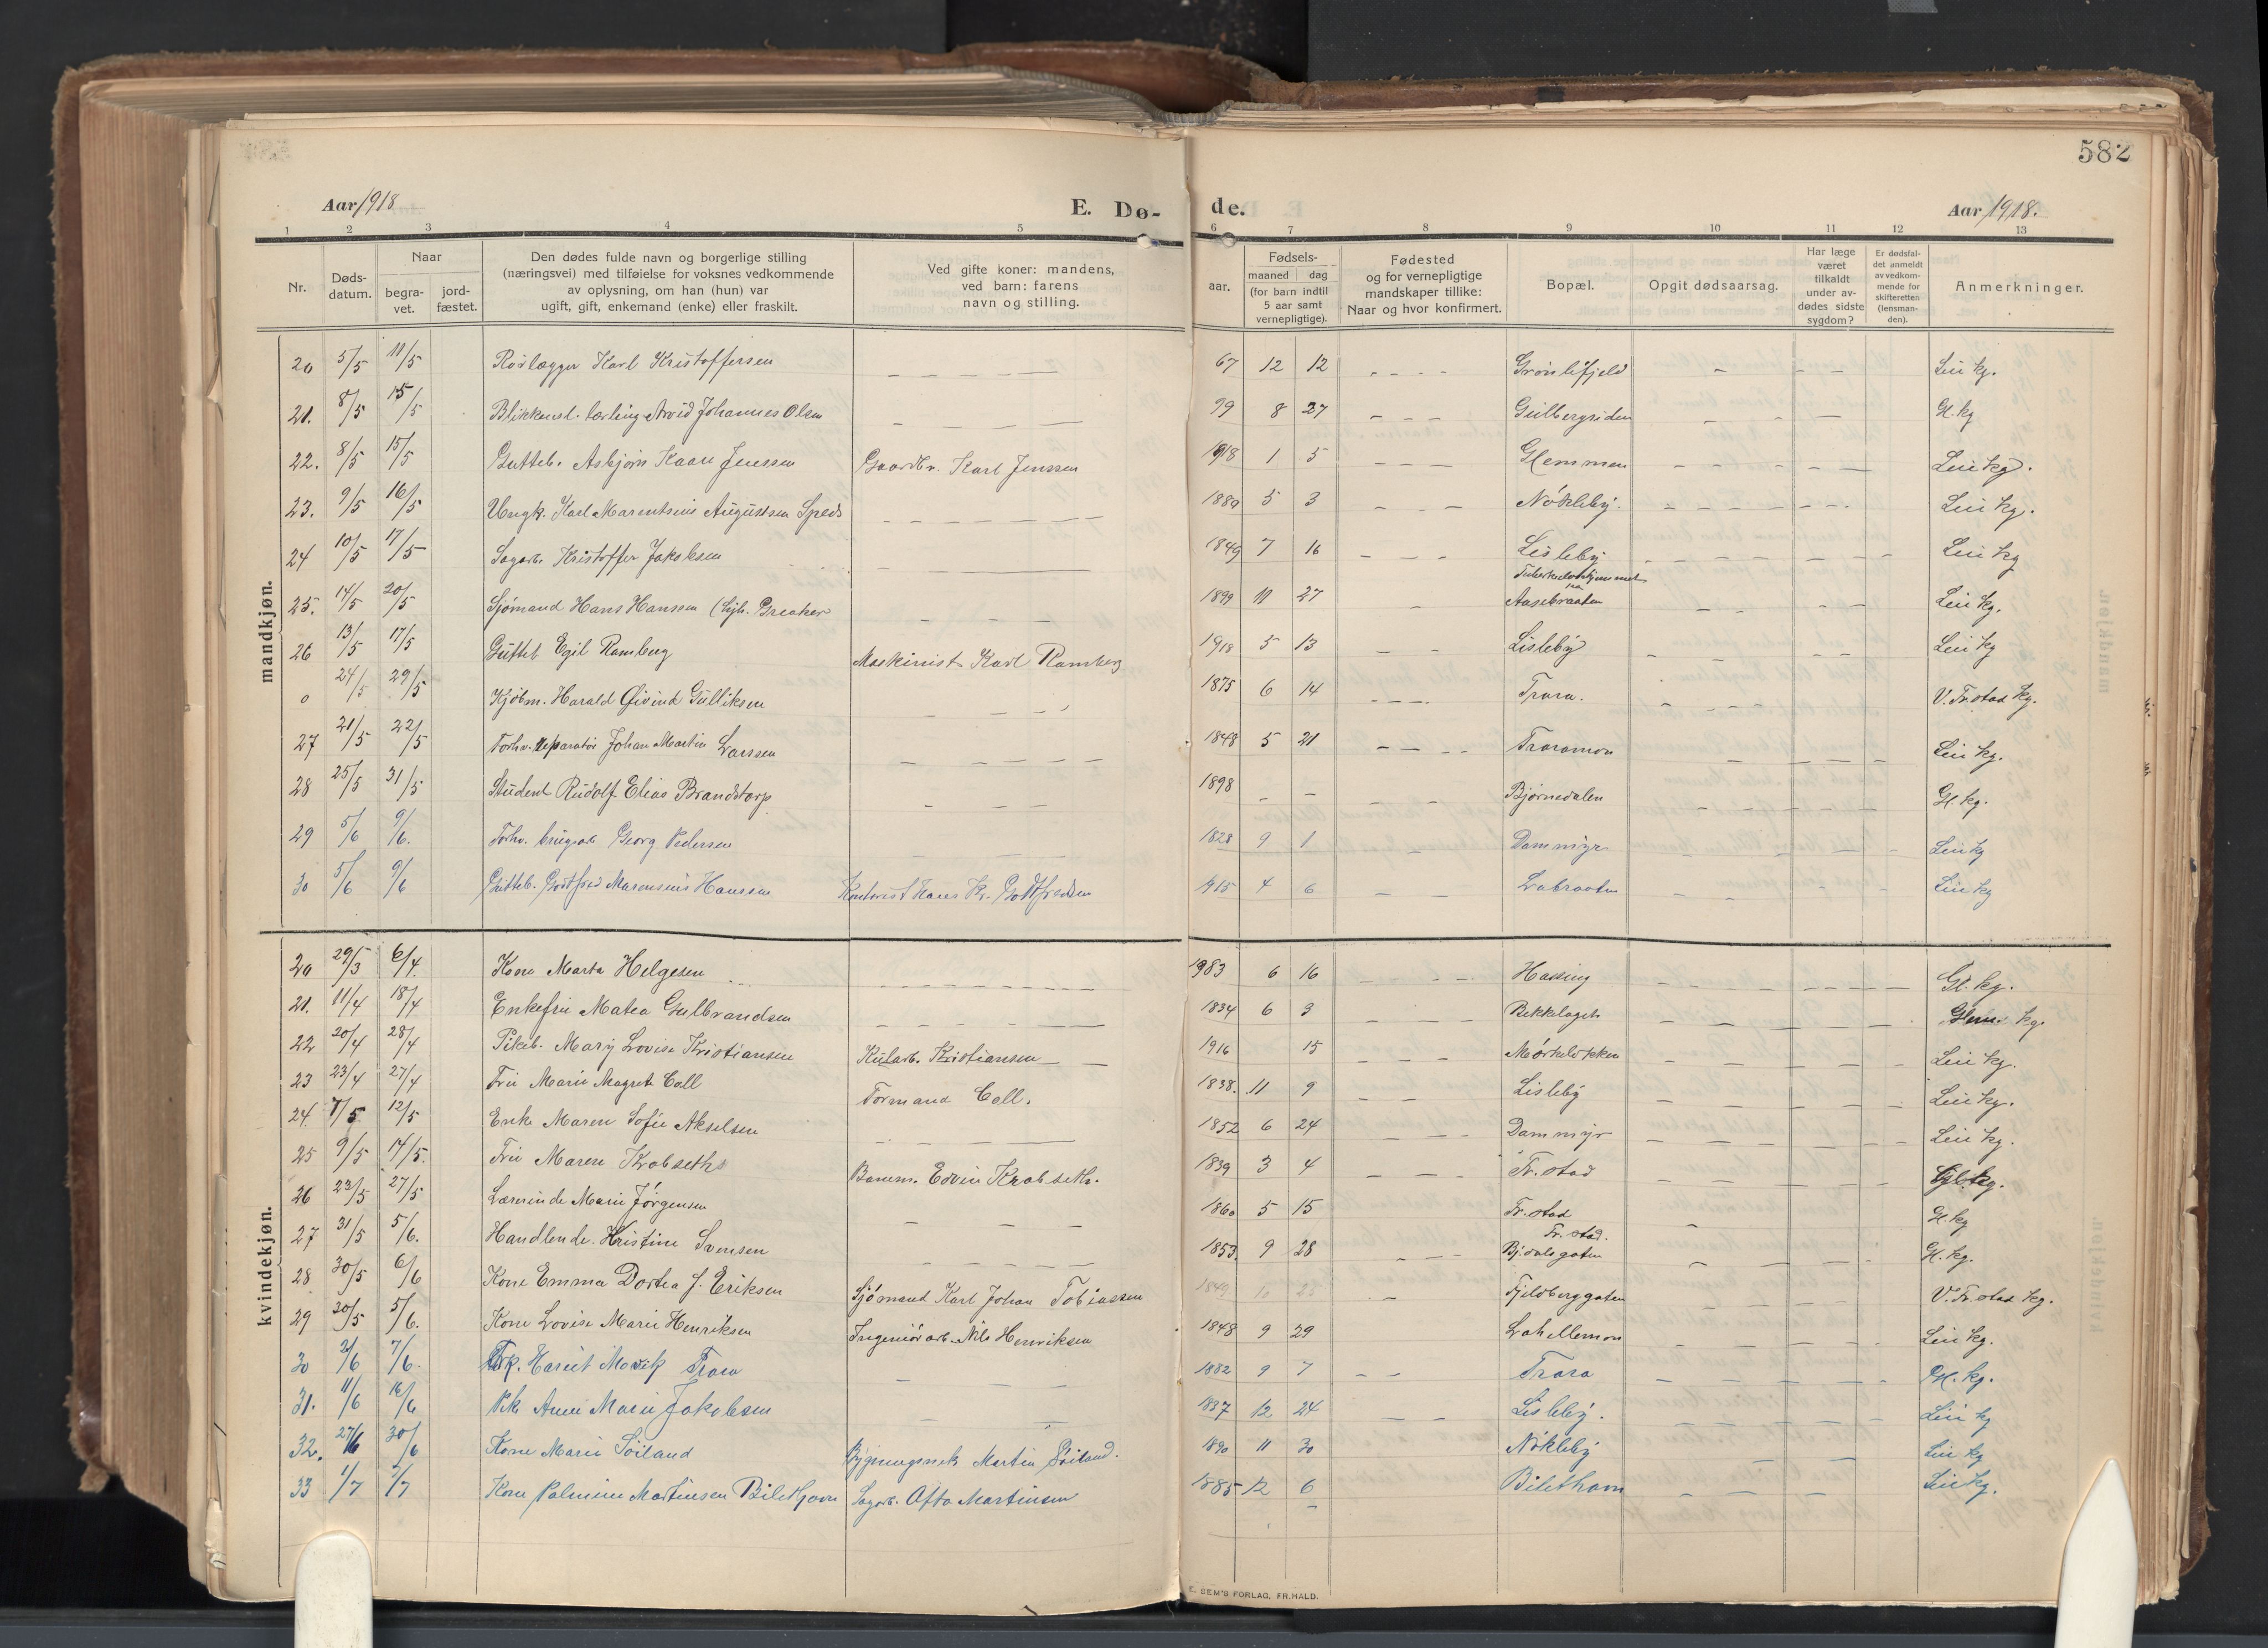 582
Aar 1918
E. Dø-
de.
Aar 1918.
1 2 3 4 5 6 7 8 9 10 11 12 13
Nr. Døds-datum. Naar begra-vet. jord-fæstet. Den dødes fulde navn og borgerlige stilling (næringsvei) med tilføielse for voksnes vedkommende av oplysning, om han (hun) var ugift, gift, enkemand (enke) eller fraskilt. Ved gifte koner: mandens, ved barn: farens navn og stilling. Fødsels- aar. maaned dag (for barn indtil 5 aar samt vernepligtige). Fødested og for vernepligtige mandskaper tillike: Naar og hvor konfirmert. Bopæl. Opgit dødsaarsag. Har læge været tilkaldt under av-dødes sidste sygdom? Er dødsfal-det anmeldt av vedkom-mende for skifteretten (lensman-den). Anmerkninger.
mandkjøn.
20 5/5 11/5 Rørlægger Karl Kristoffersen 67 12 12 Grønlifjeld Lei kg.
21. 8/5 15/5 Blikkensl. lærling Arvid Johannes Olsen 99 8 27 Gulbergsiden Gl. kg
22. 8/5 15/5 Gutteb. Asbjørn Kaare Jenssen Gaardbr. Karl Jenssen 1918 1 5 Glemmen Lei kg.
23. 9/5 16/5 Ungk. Karl Marentsius Augustsen Speds 1889 5 3 Nøkleby. Lei kg.
24 10/5 17/5 Sagarb. Kristoffer Jakobsen 1849 7 16 Lisleby Lei kg
25. 14/5 20/5 Sjømand Hans Hanssen (Sjh. Greaker 1899 11 27 Tuberkulosehjemmet paa Aasebraaten Lei kg.
26 13/5 17/5 Gutteb Egil Ramberg Maskinist Karl Ramberg 1918 5 13 Lisleby Lei kg
0 24/5 29/5 Kjøbm. Harald Øivind Gulliksen 1875 6 14 Trara. V. Fr.stad kg.
27 21/5 22/5 Forhv. reparatør Johan Martin Larssen 1848 5 21 Traramoen Lei kg.
28 25/5 31/5 Student Rudolf Elias Brandstorp 1898 Bjørnedalen Gl. kg.
29 5/6 9/6. Forhv. brugsarb Georg Pedersen 1828 9 1 Dammyr Lei kg
30 5/6 9/6 Gutteb. Gottfred Marensius Hanssen Kontorist Hans Kr. Gottfredsen 1915 4 6 Labraaten Lei kg
kvindekjøn.
20 29/3 6/4. Kone Marta Helgesen 1983 6 16 Hassing Gl. kg.
21. 11/4 18/4 Enkefru Matea Gulbrandsen 1834 6 3 Bekkelaget Glem. kg.
22 20/4 28/4 Pikeb. Mary Lovise Kristiansen Kularb. Kristiansen 1916 15 Mørkeløkken Lei kg.
23 23/4 27/4 Fru Marie Magret Coll Formand Coll. 1838. 11 9 Lisleby Lei kg.
24. 7/5 12/5 Enke Maren Sofie Akselsen 1852 6 24 Dammyr Lei kg.
25 9/5 14/5. Fru Maren Krabseth Banem. Edvin Krabseth. 1839 3 4 Fr.stad Gl. kg.
26 23/5 27/5 Lærerinde Marie Jørgensen 1860 5 15 Fr.stad Gl. kg
27 31/5 5/6. Handlende. Kristine Svensen 1853. 9 28 Fr. stad. Bjdalsgaten Gl. kg.
28 30/5 6/6 Kone Emma Dortea J. Eriksen Sjømand Karl Johan Tobiassen 1849 10 Fjeldberggaten V. Fr.stad kg.
29 30/5 5/6. Kone Lovise Marie Henriksen Ingeniørarb. Nils Henriksen 1848 9 29 Lahellemoen Lei kg.
30 2/6 7/6. Frk. Harriet Movik Trara 1882 9 7 Trara Gl. kg.
31. 11/6 16/6 Pike Anne Marie Jakobsen 1837 12 24 Lisleby. Lei kg
32. 27/6 30/6 Kone Marie Søiland Bygningssnek Martin Søiland. 1890 11 30 Nøkleby Lei kg
33 1/7 7/7 Kone Palmine Martinsen Bilethavn Sagarb. Otto Martinsen 1885 12 6 Bilethavn Lei kg.
E. SEM'S FORLAG, FR.HALD.